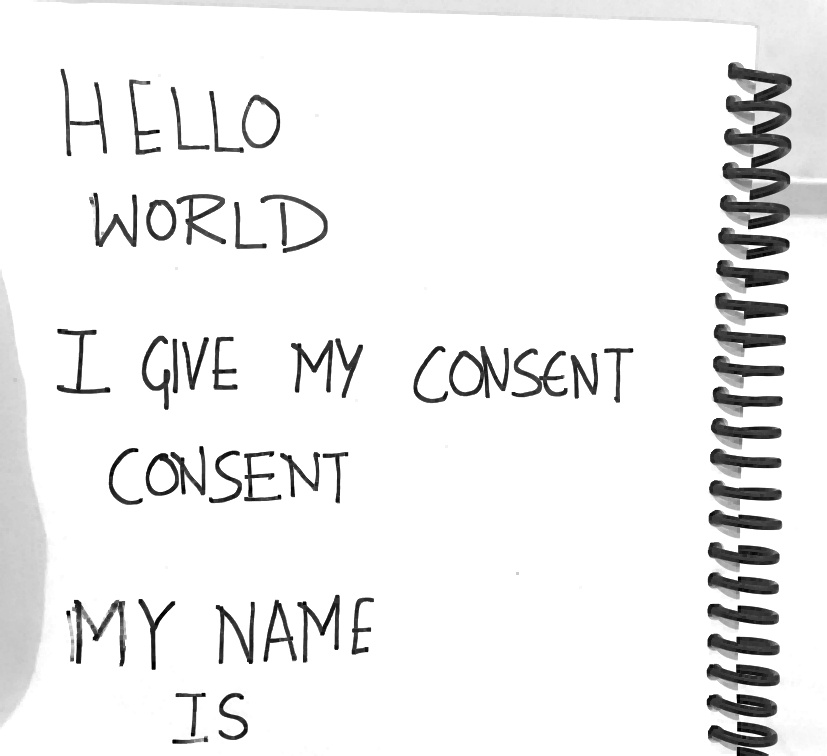 HELLO
WORLD
I GIVE MY CONSENT
CONSENT
MY NAME
IS